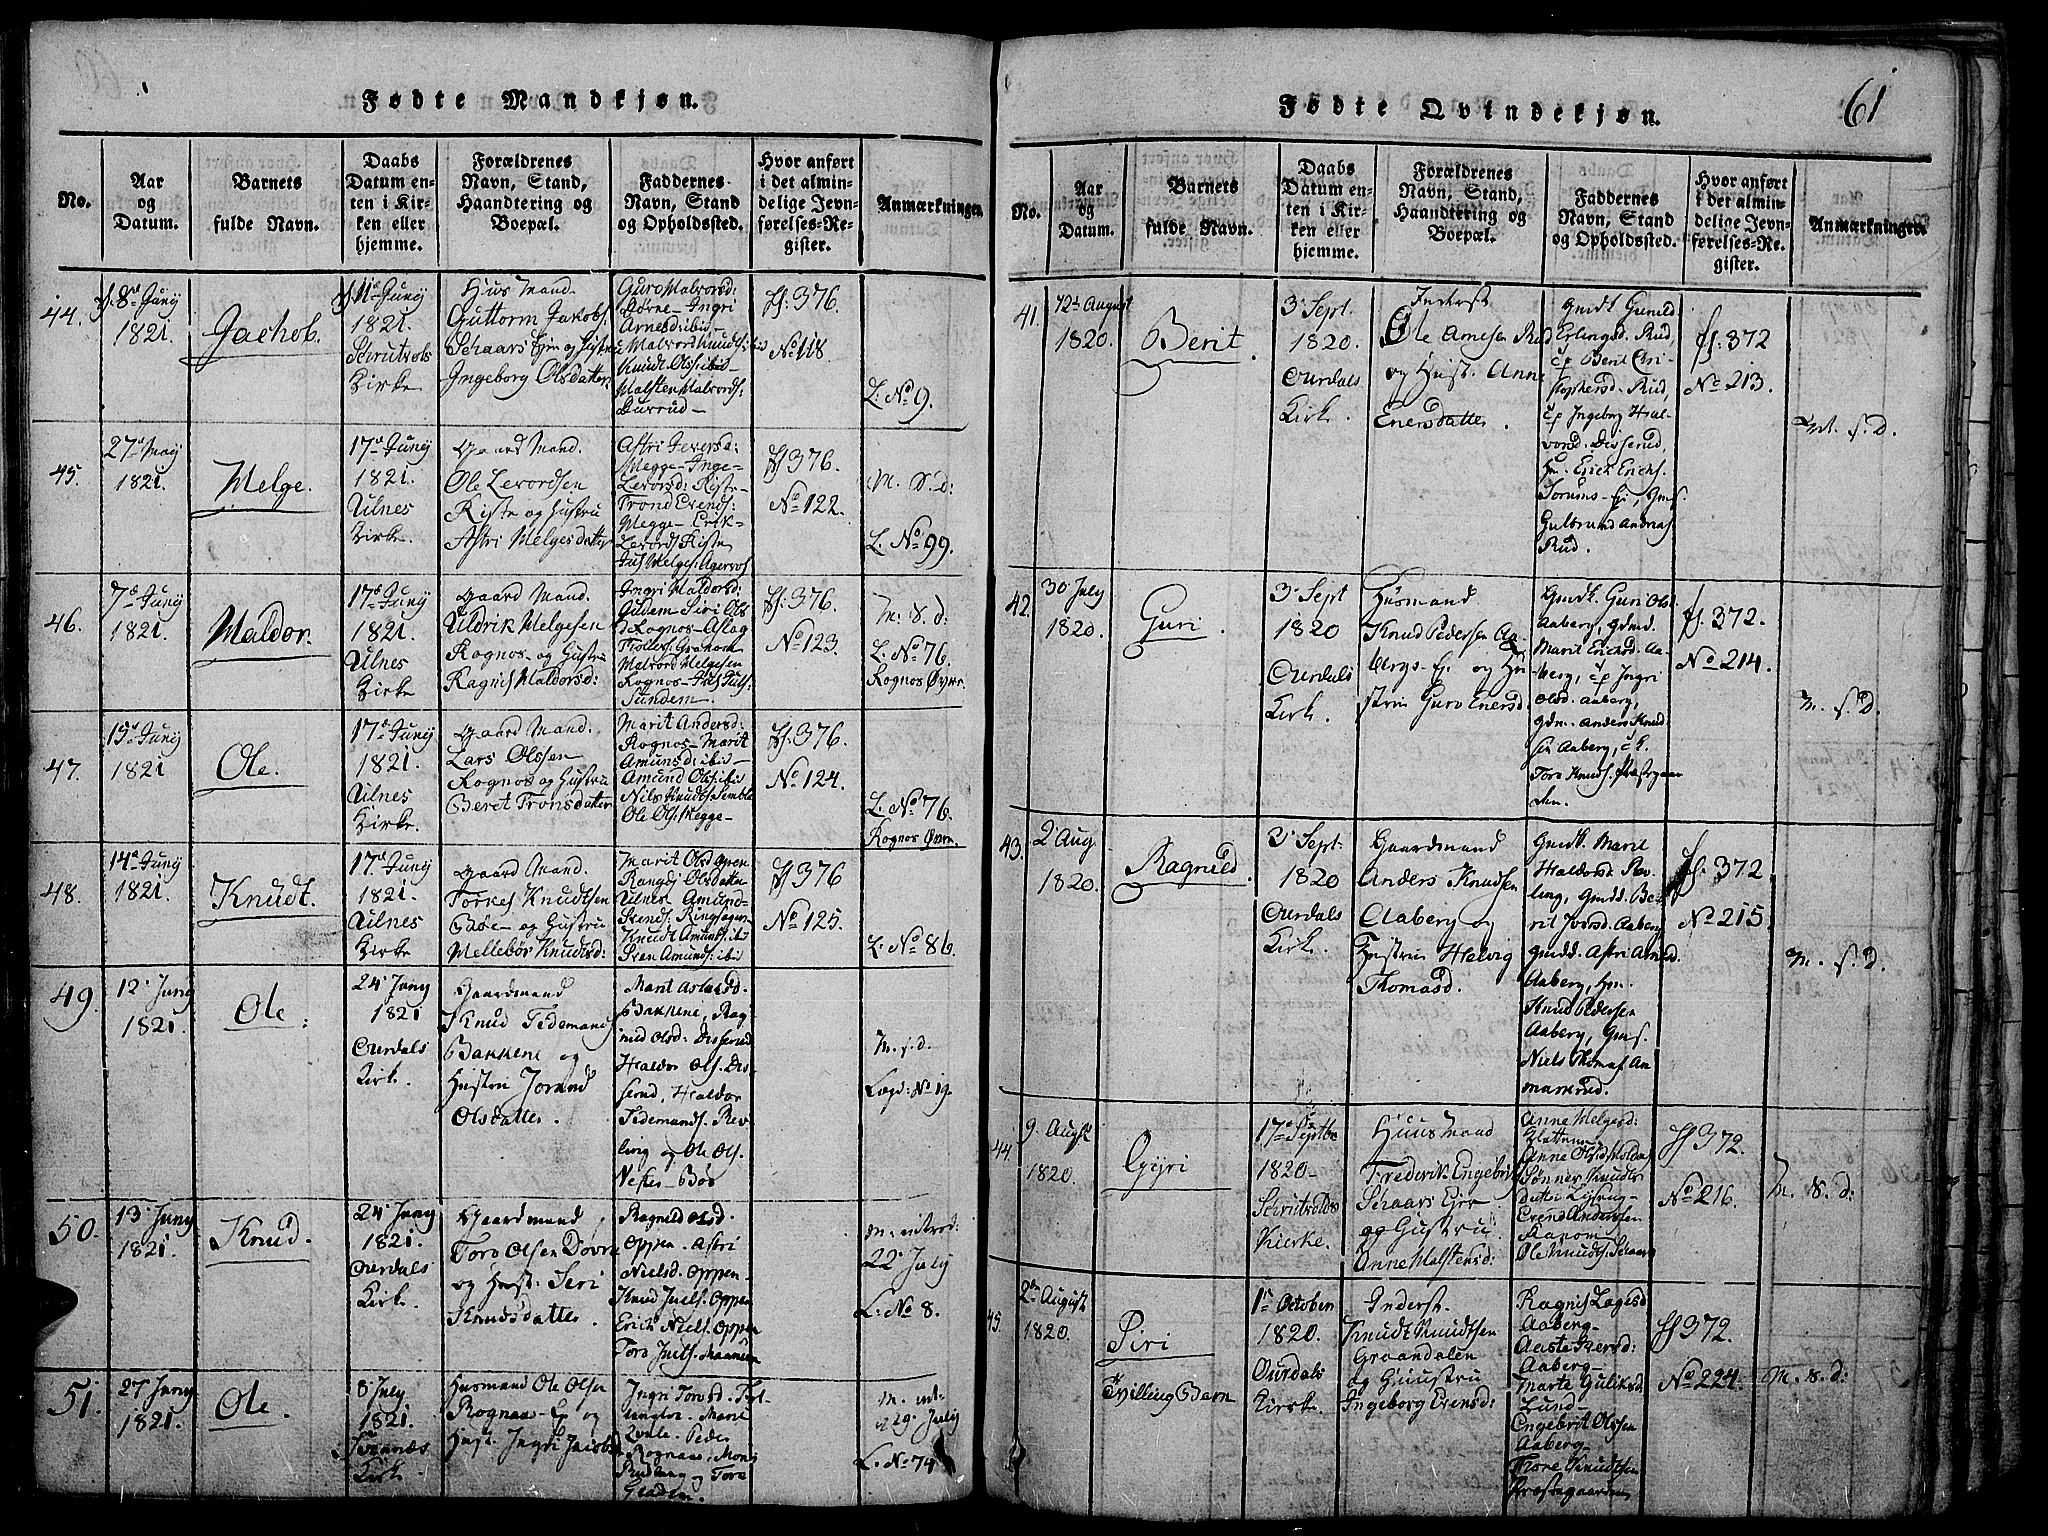 Fødte Mandkjøn.
No.
Aar
og
Datum.
Barnets
fulde Navn.
Daabs
Datum en-
ten i Kir-
ken eller
hjemme.
Forældrenes
Navn, Stand,
Haandtering og
Boepæl.
Faddernes
Navn, Stand
og Opholdssted.
Hvor anført
i det almin-
delige Jevn-
førelses-Re-
gister.
Anmærkninger.
44.
8de Juny
1821.
Jachob.
11te Juny
1821.
Schrutvols
Kirke
Huus Mand.
Guttorm Jakobs:
Schaars Eje og Hustru
Ingeborg Olsdatter
Guro Halvorsd:
Børne- Ingri
Arnesd: ibid-
Halvord Knuds: ibid
Knudt Ols: ibid-
Halsten Halvords:
ff: 376.
No 118.
L: No 9.
45.
27de May
1821.
Helge.
17de Juny
1821.
Ulnes
Kirke.
Gaard Mand.
Ole Levordsen
Riste og Hustru
Astri Helgesdatter
Astri Iversd:
Hegge- Inge-
Levorsd: Riste-
Trond Evends:
Hegge- Erik-
Levords Riste
ff 376.
No 122.
M. S. D:
L: No 99.
46.
7de Juny
1821.
Haldor.
17de Juny
1821.
Ulnes
Kirke
Gaard Mand.
Uldrik Helgesen
Rognos- og Hustru
Ragnis Haldorsd:
Ingri Haldorsd:
Siri Ols
d Rognos- Aslag
Halvord Helgesen
Rognos-
Sundem.
ff: 376.
No 123.
M: S. d:
L: No 76.
Rognos Øvre.
47.
15de Juny
1821
Ole.
17de Juny
1821.
Ulnes
Kirke.
Gaard Mand.
Lars Olssen
Rognos og Hustru
Beret Tronsdatter
Marit Andersd:
Rognos- Marit
Amunsd: ibid-
Amund Ols: ibid
Nils Knudts: Semble
Ole Ols: Hegge-
ff: 376.
No 124.
L: No 76.
Rognos Øvre.
48.
14de Juny
1821.
Knudt.
17de Juny
1821.
Ulnes
Kirke
Gaard Mand.
Torkes Knudtsen
Bøe- og Hustru
Mellebør Knudsd:
Marit Olsd
Rangdi Olsdatter
Ulnes Amund-
Svends: Ringsager
Knudt Amunds: ibid
Sven Amunds: ibid
ff 376
No 125.
L: No 86.
49.
12. Juny
1821.
Ole.
24. Juny
1821
Ourdals
Kirk.
Gaardmand
Knud Tidemands
Bakkene og
Hustru Jorand
Olsdatter.
Marit Aslaksd.
Bakkene, Rag-
nild Olsd: Disserud
Haldor Ols. Dis-
serud, Haldor
Tidemands. Rev-
ling og Ole Ols.
Bøe
M. s. d.
Løgd: No 19.
50.
13. Juny
1821.
Knud.
24. Juny
1821.
Ourdals
Kirk.
Gaardmand
Tore Olsen Døvre
og Hust: Seri
Knudsdatter.
Ragnild Olsd.
Oppen. Astri
Nielsd. Oppen.
Knud Juels. Oppen
Erich Niels. Oppen
M. introd:
22. July
L: No 8.
51.
27. Juny
1821.
Ole.
8. July
1821.
Kirk.
Husmand Ole Olsen
Rognaas- Ej. og
Hust. Ingri Jacobsd.
Ingri Torsd.
Marit
Peder
Rognaas,
og Tore
M. int:
29. July
L. No 74
Fødte Qvindekjøn.
61
No.
Aar
og
Datum.
Barnets
fulde Navn.
Daabs
Datum en-
ten i Kir-
ken eller
hjemme.
Forældrenes
Navn, Stand,
Haandtering og
Boepæl.
Faddernes
Navn, Stand
og Opholdssted.
Hvor anført
i det almin-
delige Jevn-
førelses-Re-
gister.
Anmærkninger.
41.
12te August
1820.
Berit.
3. Sept.
1820.
Ourdals
Kirk.
Inderst
Ole Arnesen Rud
og Hust. Anne
Enersdatter.
Gmdk Gunild
Erlingsd. Rud,
cp Berit Cri-
stophersd. Rud,
cp Ingeborg Hal-
vorsd. Disserud,
Hm. Erick Erichs.
Sorums-Ej., Gms.
Gulbrand Andreas
Rud.
ff: 372
No 213.
M. s. d.
42.
30. July
1820.
Guri.
3. Sept
1820
Ourdals
Kirk.
Husmand
Knud Pedersen Aa-
bergs-Ej. og Hu-
strue Guro Enersd.
Gmdk. Guri Olsd.
Aaberg, Gdmd.
Marit Erichsd. Aa-
berg, cp Ingri
Olsd. Aaberg,
Gdm. Anders Knud-
sen Aaberg,
Tore Knuds. Præstegaar
den.
ff. 372.
No 214.
M. s. d.
43.
2. Aug.
1820.
Ragnild.
3. Sept.
1820
Ourdals
Kirk.
Gaardmand
Anders Knudsen
Aaberg og
Hustrue Helvig
Thomasd.
Gmdk. Marit
Haldorsd. Rev-
ling, Gmdd. Be-
rit Jversd. Aaberg
Gmdd. Astri Arnesd.
Aaberg, Hm.
Knud Pedersen
Aaberg, Gms.
Niels Thomas.
ff: 372
No 215.
M. s. d.
44.
9. August
1820.
Gyri
17de Septbr
1820.
Schrutvolds
Kierke.
Huusmand
Frederik Engebrigts:
Schaars Eje-
og Hustru
Anne Halstensd:
Anne Helgesd:
Anne Olsd
Knuds
datter
Evend Andersen
Ranom-
Ole Knudts: Schaars
ff 372.
No 216.
M. s. d:
45.
2den August
1820.
Siri
Tvilling Barn
1te October
1820.
Ourdals
Kirke.
Inderst.
Knudt Knudtsen
Graandalen
og Huustru
Ingeborg Evensd:
Ragnis
Aaberg-
Aaste Iversd:
Aaberg-
Marte Guliksd:
Lund-
Engebrit Olssen
Aaberg-
Thore Knudtsen
Præstegaarden
ff 372.
No 224.
M. s. d: